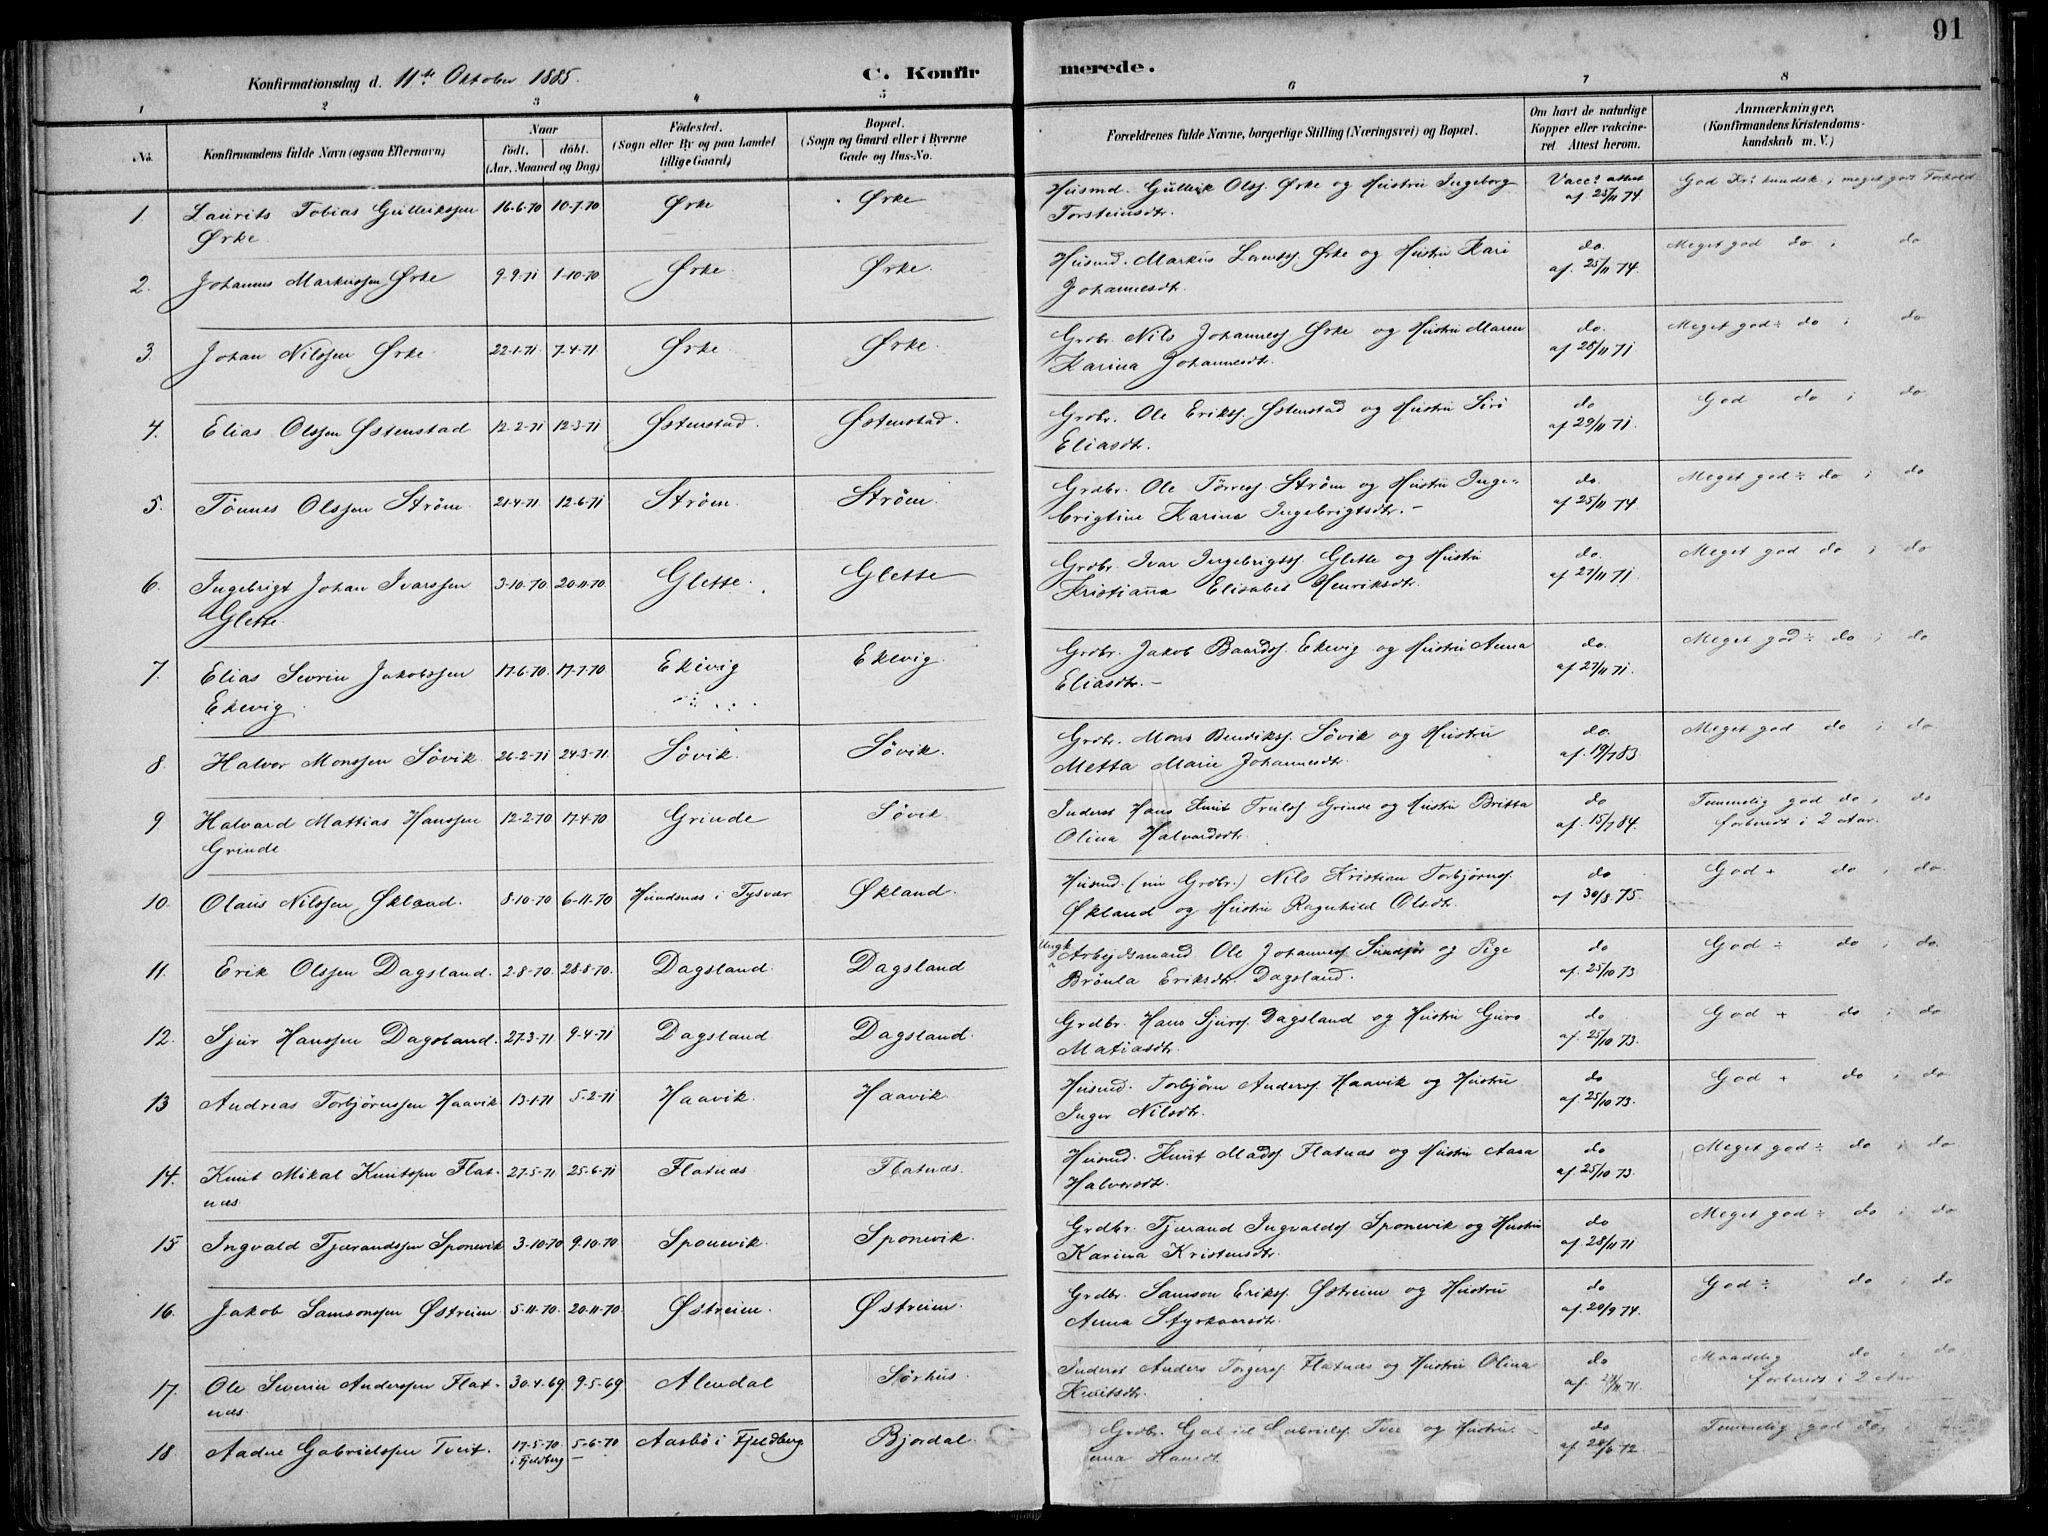 91
Konfirmationsdag d. 11te Oktober 1885.
C. Konfirmerede.
1 2 3 4 5 6 7 8
No.
Konfirmandens fulde Navn (ogsaa Efternavn)
Naar
født. døbt.
(Aar, Maaned og Dag)
Fødested.
(Sogn eller By og paa Landet
tillige Gaard)
Bopæl.
(Sogn og Gaard eller i Byerne
Gade og Hus-No.
Forældrenes fulde Navne, borgerlige Stilling (Næringsvei) og Bopæl.
Om havt de naturlige
Kopper eller vakcine-
ret Attest herom.
Anmærkninger.
(Konfirmandens Kristendoms-
kundskab m. V.)
1. Laurits Tobias Gulliksen 16-6-70 10-7-70 Ørke Ørke Husmd. Gullik Olss. Ørke og Hustru Ingeborg Vacc. attest God Kr. kundsk; meget god Forhold
Ørke. Torsteinsdtr. af 25/11 74.
2. Johannes Markussen Ørke 9-9-71 1-10-70 Ørke. Ørke. Husmd. Markus Larss. Ørke og Hustru Kari do. Meget god do ; do
Johannesdtr. af. 25/11 74.
3. Johan Nilssen Ørke 22-1-71 7-4-71 Ørke. Ørke. Grdbr. Nils Johanness. Ørke og Hustru Maren do. Meget god ÷ do ; do
Karina Johannesdtr. af 28/11 71
4. Elias Olssen Østenstad 12-2-71 12-3-71 Østenstad. Østenstad. Grdbr. Ole Erikss. Østenstad og Hustru Siri do God do ; do
Eliasdtr. af 29/11 71.
5. Tønnes Olssen Strøm 21-4-71 12-6-71 Strøm. Strøm. Grdbr. Ole Tørress. Strøm og Hustru Inge- do. Meget god ÷ do ; do
brigtine Karina Ingebrigtsdtr. - af 25/11 74
6. Ingebrigt Johan Ivarssen 3-10-70 20-11-70 Glette. Glette Grdbr. Ivar Ingebrigtss. Glette og Hustru do. Meget god do ; do
Glette. Kristianna Elisabet Henriksdtr. af 27/11 71
7. Elias Sevrin Jakobssen 17-6-70 17-7-70 Ekevig Ekevig. Grdbr. Jakob Baardss. Ekevig og Hustru Anna do. Meget god ÷ do ; do
Ekevig. Eliasdtr. - af 27/11 71.
8. Halvor Monssen Søvik 26-2-71 24-3-71 Søvik. Søvik. Grdbr. Mons Bendikss. Søvik og Hustru do. Meget god do ; do
Metta Marie Johannesdtr. af. 19/7 83
9 Halvard Mattias Hanssen 12-2-70 17-4-70 Grinde Søvik. Inderst Hans Knut Trulss. Grinde og Hustru Britta do Temmelig god do ; do
Grinde Olina Halvardsdtr. af. 15/7 84. forberedt i 2 Aar.
10. Olaus Nilssen Økland. 8-10-70 6-11-70 Hundsnæs i Tysvær Økland. Husmd. (nu Grdbr.) Nils Kristian Torbjørns. do God + do ; do
Økland og Hustru Ragnhild Olsdtr. af 30/8 75.
11. Erik Olssen Dagsland. 2-8-70. 28-8-70. Dagsland. Dagsland Ungk. Arbejdsmand Ole Johanness. Sundfør og Pige do God ÷ do ; do
Brønla Eriksdtr. Dagsland. af. 25/10 73
12. Sjur Hanssen Dagsland. 27-3-71 9-4-71 Dagsland Dagsland. Grdbr. Hans Sjurss. Dagsland og Hustru Guro do God + do ; do
Matiasdtr. af. 25/10 73.
13 Andreas Torbjørnssen Haavik 13-1-71 5-2-71 Haavik. Haavik. Husmd. Torbjørn Anderss. Haavik og Hustru do God + do ; do
Inger Nilsdtr. af. 25/10 73.
14. Knut Mikal Knutssen Flat- 27-5-71 25-6-71 Flatnæs Flatnæs. Husmd. Knut Madss. Flatnæs og Hustru Aasa do Meget god ÷ do ; do
næs Halvorsdtr. af 25/10 73.
15 Ingvald Tjerandssen Sponevik 3-10-70 9-10-70 Sponevik. Sponevik. Grdbr. Tjerand Ingvaldss. Sponevik og Hustru do Meget god ÷ do ; do
Karina Kristensdtr. af 28/11 71
16. Jakob Samsonssen Østreim 5-11-70. 20-11-70. Østreim. Østreim. Grdbr. Samson Erikss. Østreim og Hustru do God ÷ do ; do
Anna Styrkaarsdtr. af. 20/9 74.
17. Ole Severin Anderssen Flat- 30-4-69 9-5-69 Alendal Sørhus. Inderst Anders Torgerss. Flatnæs og Hustru Olina do Maadelig do ; do.
næs. Knutsdtr. af. 27/11 71. forberedt i 2 Aar
18. Aadne Gabrielssen Tveit. 17-5-70. 5-6-70 Aasbø i Fjeldberg Bjordal. Grdbr. Gabriel Gabrielss. Tveit og Hustru do Temmelig god do,
i Fjeldberg Hansdt af 20/6 72